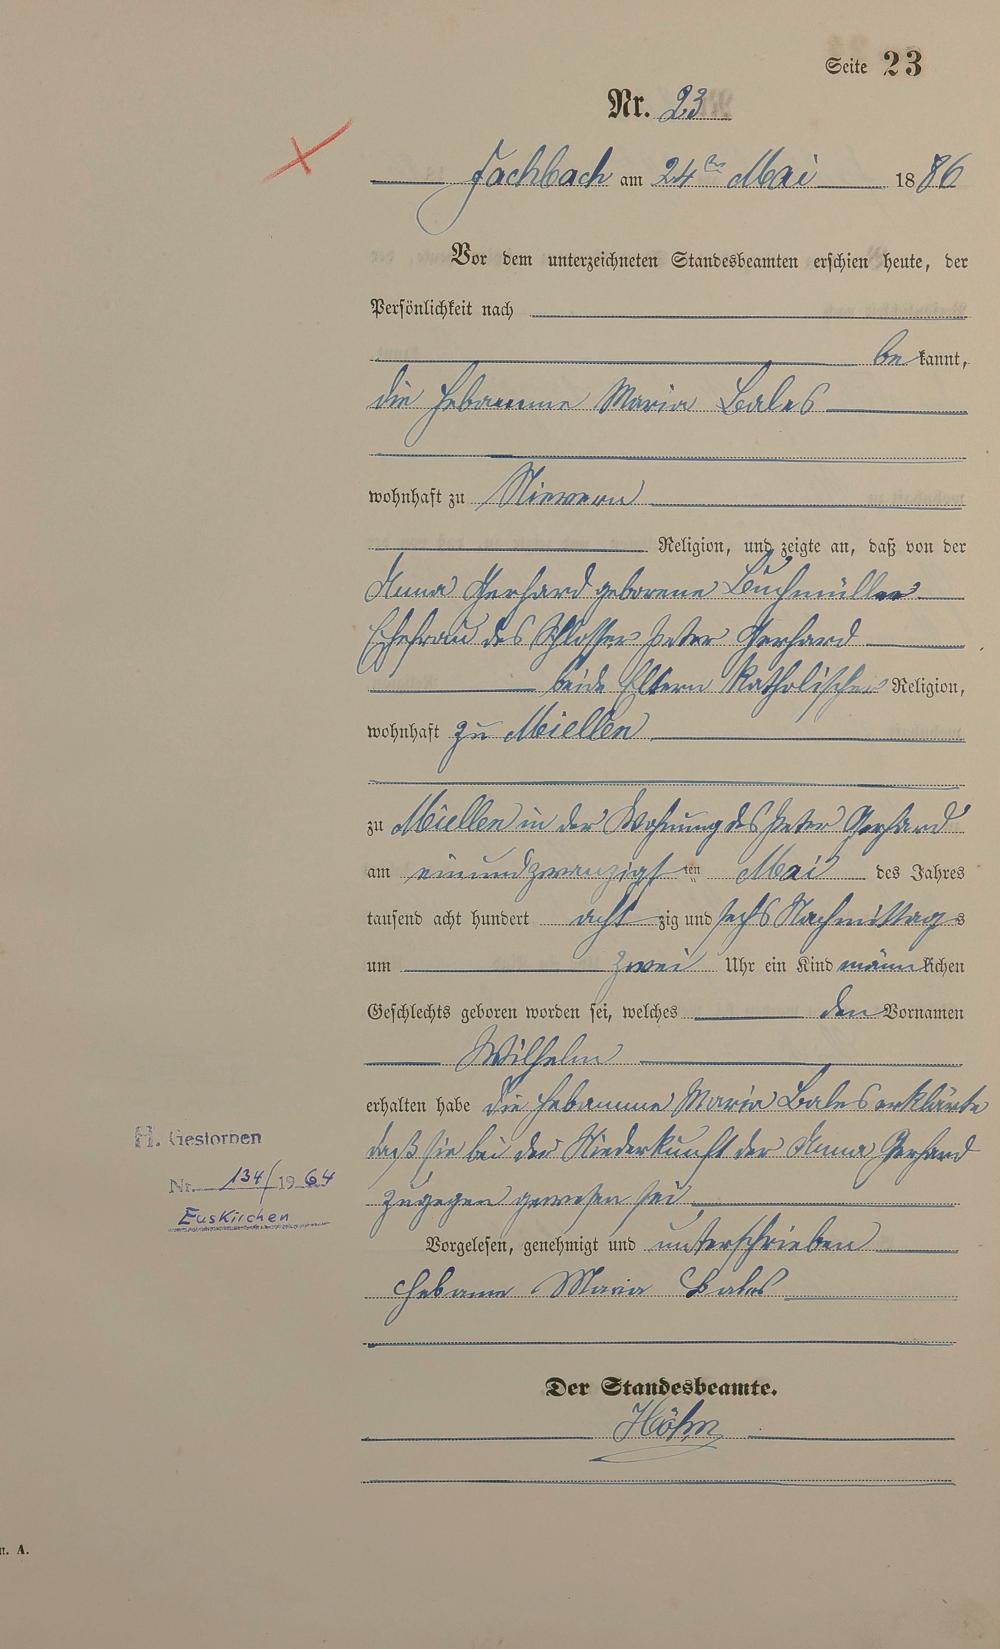 Seite 23
Nr. 23
Fachbach am 24ten Mai 1886
Vor dem unterzeichneten Standesbeamten erschien heute, der
Persönlichkeit nach
bekannt,
die Hebamme Maria Bales
wohnhaft zu Nievern
Religion, und zeigte an, daß von der
Anna Gerhard geborene Buchmüller
Ehefrau des Schlosser Peter Gerhard
beide Eltern Katholischer Religion,
wohnhaft zu Miellen
zu Miellen in der Wohnung des Peter Gerhard
am einundzwanzigsten Mai des Jahres
tausend acht hundert achtzig und sechs Nachmittags
um zwei Uhr ein Kind männlichen
Geschlechts geboren worden sei, welches den Vornamen
Wilhelm
erhalten habe die Hebamme Maria Bales erklärte
daß sie bei der Niederkunft der Anna Gerhard
zugegen gewesen sei
H. Gestorben
Nr. 134/1964
Euskirchen
Vorgelesen, genehmigt und unterschrieben
Hebamm Maria Bales
Der Standesbeamte.
Höhn
A.